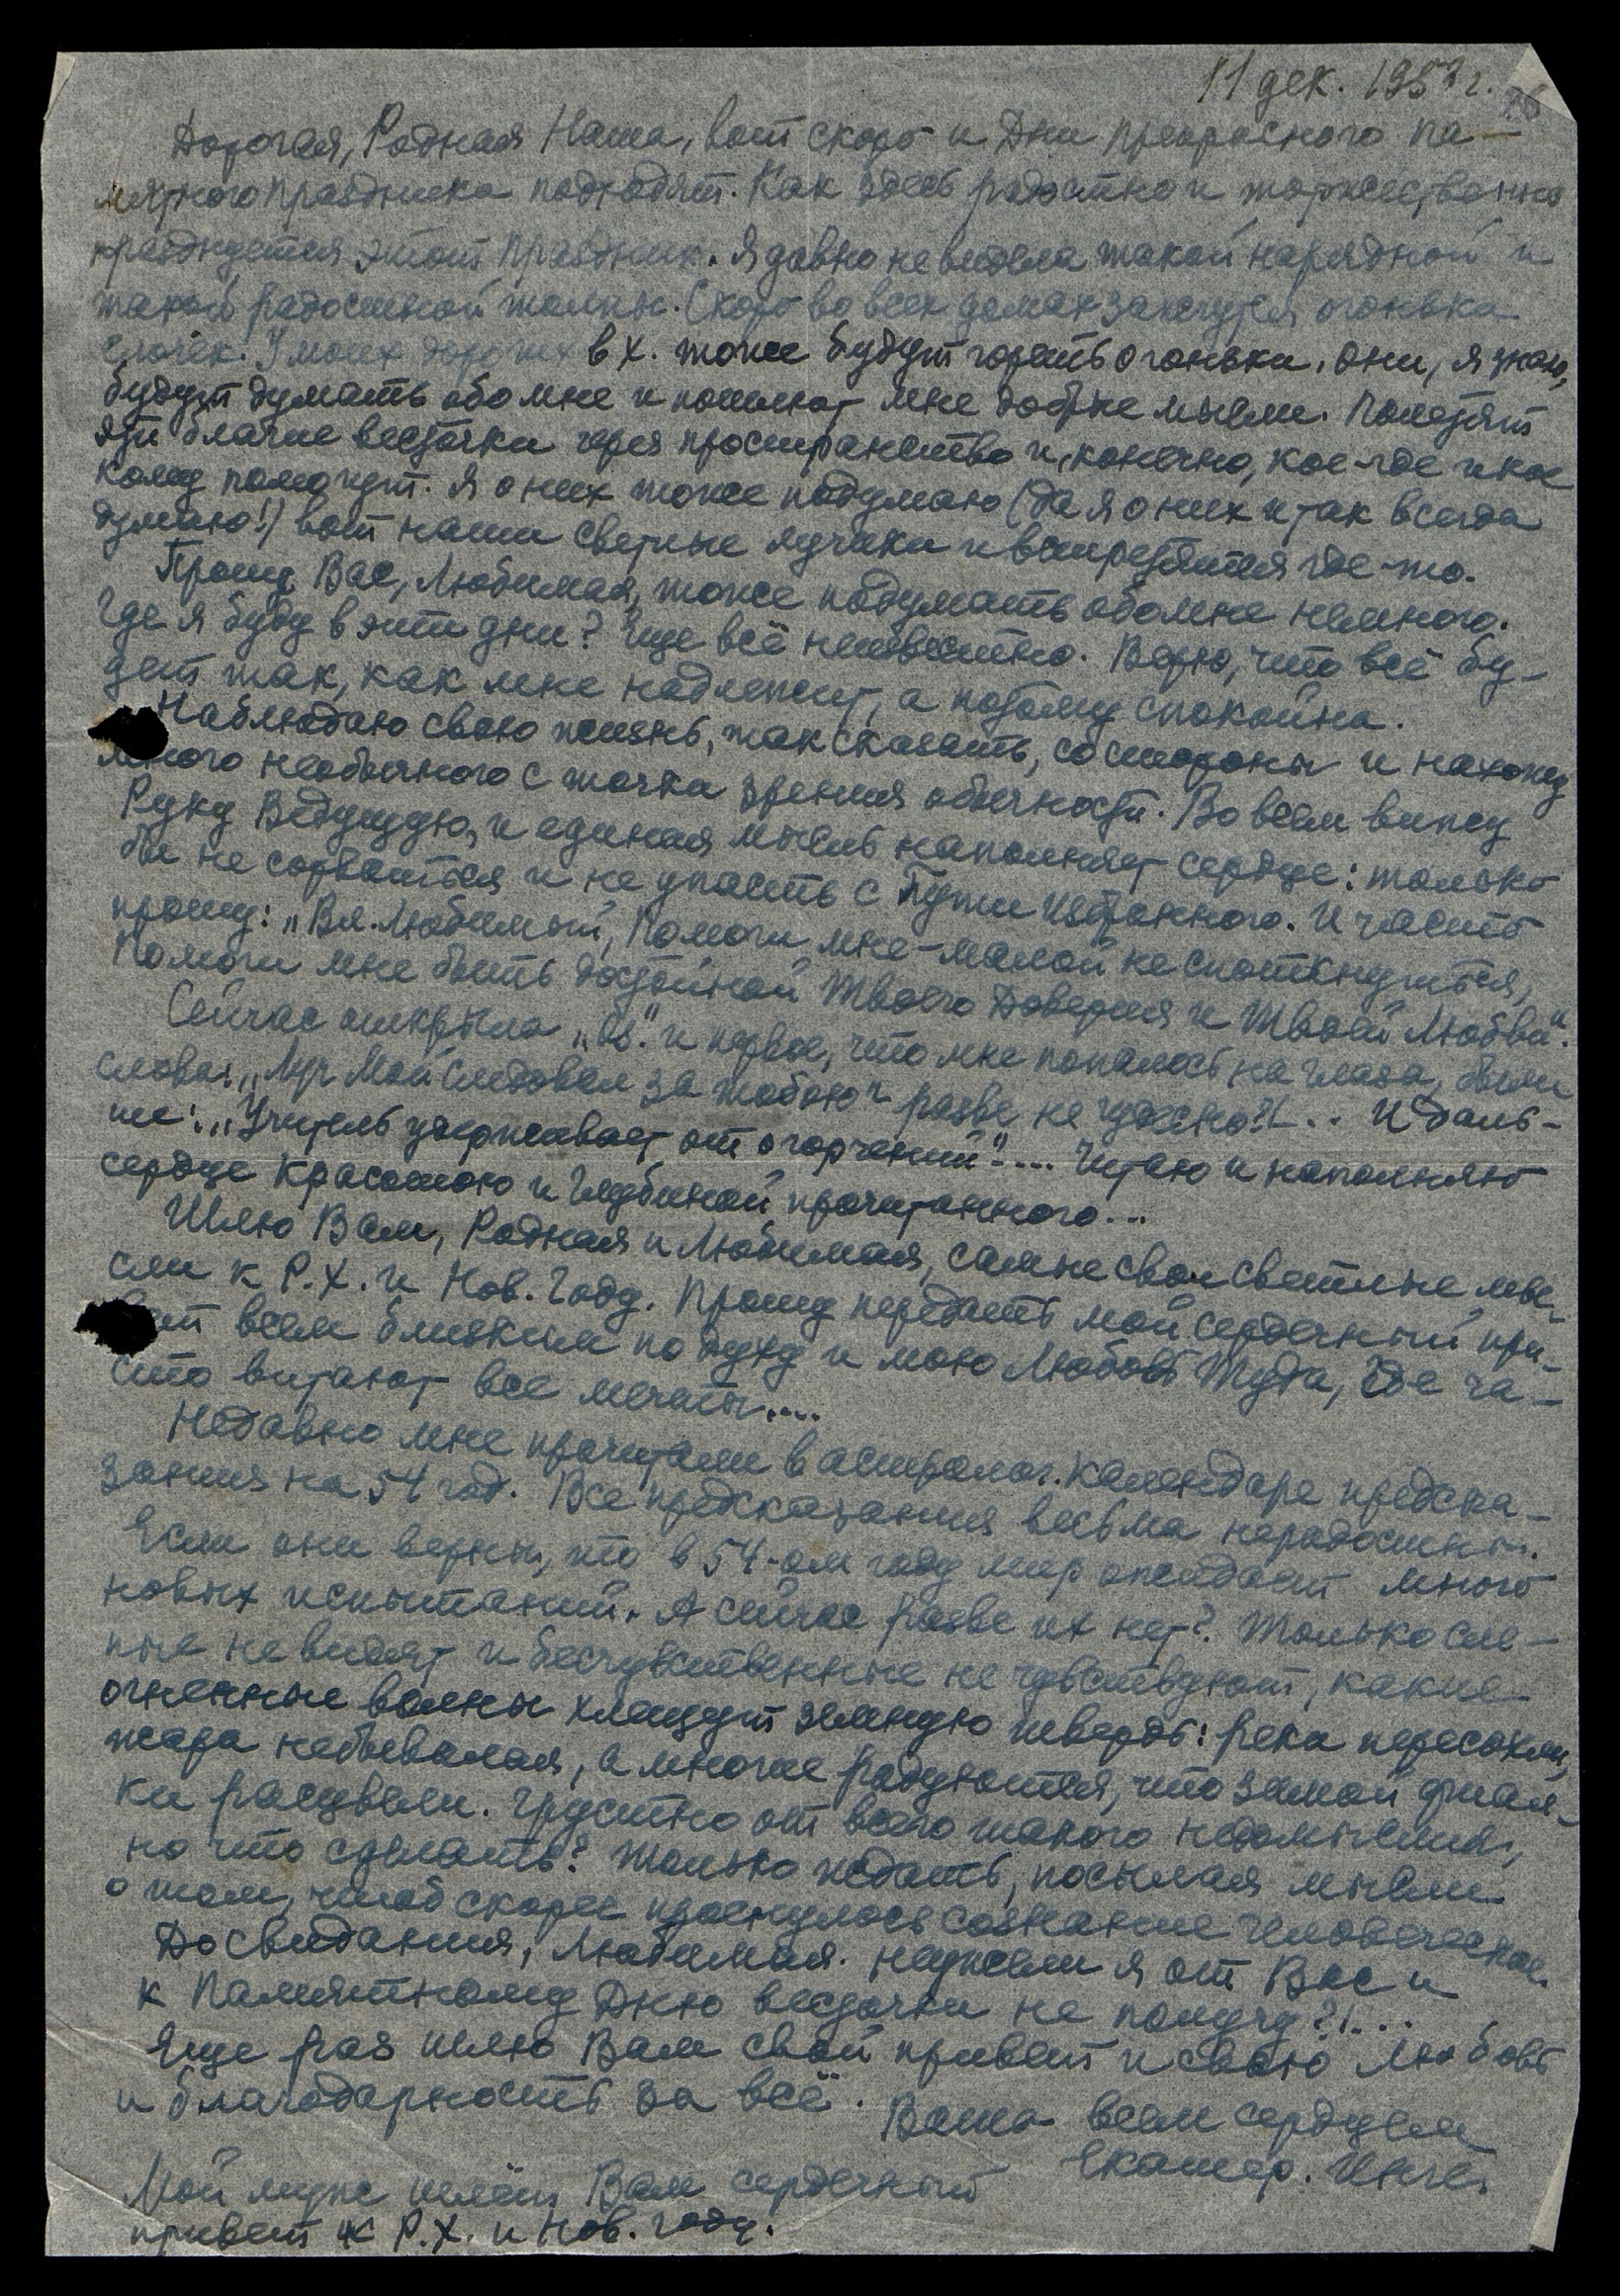 11 дек. 1953 г.
Дорогая, Родная Наша, вот скоро и Дни прекрасного па-
мятного праздника подходят. Как здесь радостно и торжественно
празднуется этот праздник. Я давно не видела такой нарядной и
такой радостной толпы. Скоро во всех домах зажгутся огоньки
ёлочек. У моих дорогих в Х. тоже будут гореть огоньки. Они, я знаю,
будут думать обо мне и пошлют мне добрые мысли. Полетят
эти благие весточки через пространство и, конечно, кое-где и кое
кому помогут. Я о них тоже подумаю (да я о них и так всегда
думаю!) вот наши светлые лучики и встретятся где-то.
Прошу Вас, Любимая, тоже подумать обо мне немного.
Где я буду в эти дни? Еще всё неизвестно. Верю, что всё бу-
дет так, как мне надлежит, а потому спокойна.
Наблюдаю свою жизнь, так сказать, со стороны и нахожу
много необычного с точки зрения обычности. Во всем вижу
Руку Ведущую, и единая мысль наполняет сердце: только
бы не сорваться и не упасть с Пути избранного. И часто
прошу: „Вл. Любимый, Помоги мне-малой не споткнуться,
Помоги мне быть достойной Твоего Доверия и Твоей Любви".
Сейчас открыла „Оз." и первое, что мне попалось на глаза, были
слова: „Луч Мой следовал за тобою" разве не чудесно?!... И даль-
ше: „Учитель удерживает от огорчений".... Читаю и наполняю
сердце красотою и глубиной прочитанного...
Шлю Вам, Родная и Любимая, самые свои светлые мы-
сли к Р.Х. и Нов. Году. Прошу передать мой сердечный при-
вет всем близким по духу и мою Любовь Туда, где ча-
сто витают все мечты....
Недавно мне прочитали в астролог. календаре предска-
зания на 54 год. Все предсказания весьма нерадостны.
Если они верны, то в 54-ом году мир ожидает много
новых испытаний. А сейчас разве их нет? Только сле-
пые не видят и бесчувственные не чувствуют, какие
огненные волны хлещут земную твердь: реки пересохли,
жара небывалая, а многие радуются, что зимой фиал-
ки расцвели. Грустно от всего такого недомыслия,
но что сделать? Только ждать, посылая мысли
о том, чтоб скорее проснулось сознание человеческое.
До свидания, Любимая. Неужели я от Вас и
к Памятному Дню весточки не получу?!...
Еще раз шлю Вам свой привет и свою Любовь
и благодарность за всё.
Ваша всем сердцем
Екатер. Инге
Мой муж шлёт Вам сердечный
привет к Р.Х. и Нов. году.